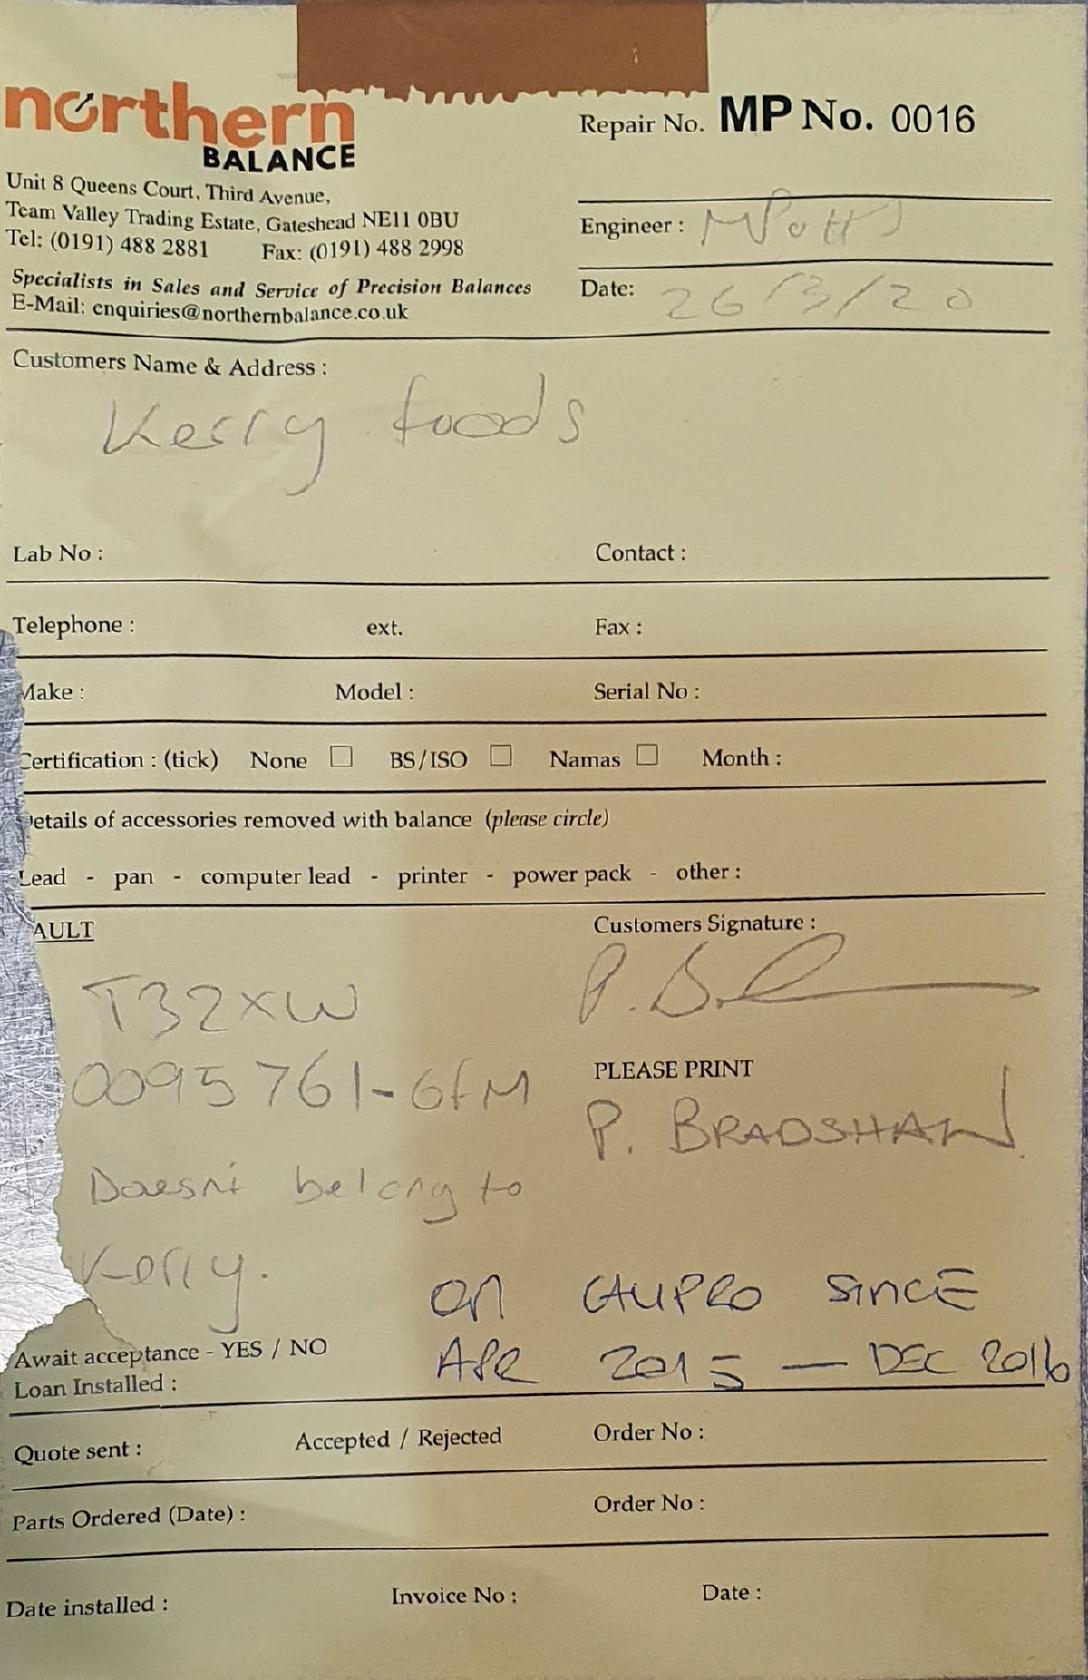 northern
BALANCE
Unit 8 Queens Court, Third Avenue,
Team Valley Trading Estate, Gateshead NE11 0BU
Tel: (0191) 488 2881 Fax: (0191) 488 2998
Specialists in Sales and Service of Precision Balances
E-Mail: enquiries@northernbalance.co.uk
Repair No. MP No. 0016
Engineer : M Potts
Date: 26/3/20
Customers Name & Address :
Kerry foods
Lab No : Contact :
Telephone : ext. Fax :
Make : Model : Serial No :
Certification : (tick) None BS/ISO Namas Month :
etails of accessories removed with balance (please circle)
Lead - pan - computer lead - printer - power pack - other :
AULT Customers Signature :
T32XW P. B
0095761-6FM PLEASE PRINT
P. BRADSHAW
Doesnt belong to
Kerry.
on CALIPRO SINCE
APR 2015 — DEC 2016
Await acceptance - YES / NO
Loan Installed :
Quote sent : Accepted / Rejected Order No :
Parts Ordered (Date) : Order No :
Date installed : Invoice No : Date :